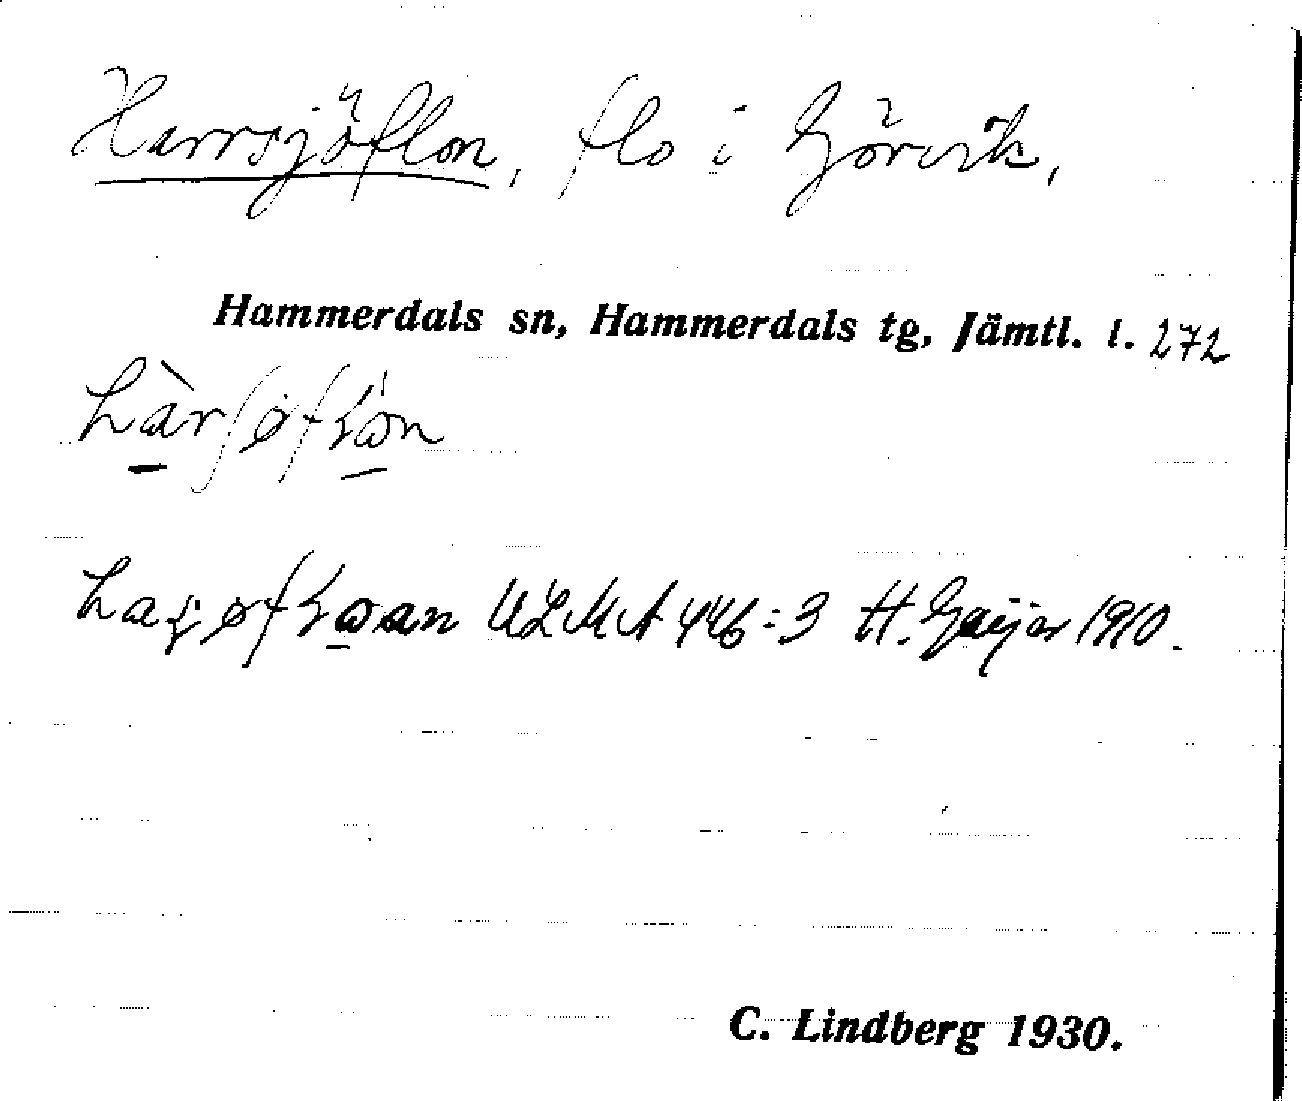 Harrsjöflon, flo i Görvik,
Hammerdals sn, Hammerdals tg, Jämtl. l. 272
ULMA 446:3 H. Geijer 1910.
C. Lindberg 1930.